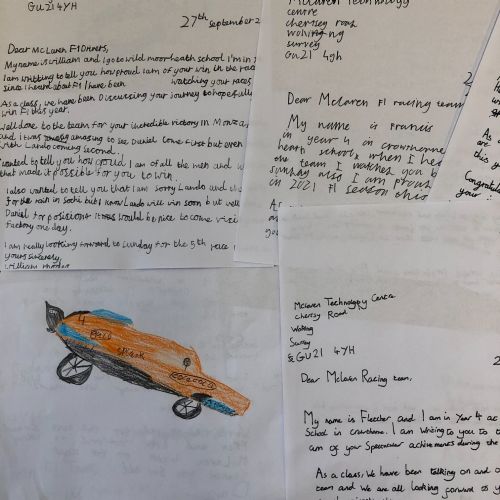 GU21 4YH
27th september 2
Dear McLaren F1 Owners,
My name is william and I go to wild moor heath school I'm in
I am writting to tell you how proud I am of your win in the race
since I heard about F1 I have been watching your races
As a class, we have been Discussing your journey to hopefully
win F1 this year.
well done to the team for your incredible victory in Monza
and it was amazing to see Daniel come first but even
with Lando coming second.
wanted to tell you how proud I am of all the men and
that made it possible for you to win.
I also wanted to tell you that I am sorry Lando and
for the rain in sochi but I know Lando will win soon but well
Daniel for position It would be nice to come visit
factory one day.
I am really looking forward to sunday for the 5th race
yours sincerely,
william
McLaren Technology
centre
chersey road
woking
surrey
GU21 4gh
Dear Mclaren F1 racing team
My name is Francis
in year 4 in crowthorne
heath school. when I hea
one team I watched you b
sunday also I am proud
in 2021 F1 season
As
As a
are
this y
Congratul
your
4
Mclaren Technology Centre
chersey Road
Woking
Surrey
GU21 4YH
2
Dear Mclaren Racing team,
My name is Fletcher and I am in Year 4 at
School in crowthorne. I am Writing to you to t
am of your Spectacular achievements during the
As a class, We have been talking on and
team and We are all looking forward to